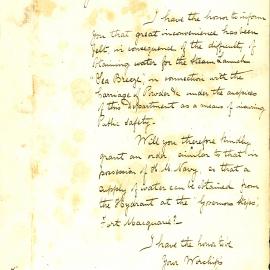 I have the honor to inform
you that great inconvenience has been
felt, in consequence of the difficulty of
obtaining water for the Steam Launch
"Sea Breeze", in connection with the
Carriage of Powder &c under the auspices
of this Department as a means of insuring
Public Safety.-
Will you therefore kindly
grant an order, similar to that in
possession of H. M. Navy, so that a
supply of water can be obtained from
the Hydrant at the "Governors Steps,"
Fort Macquarie?-
I have the honor to be
Your Worships